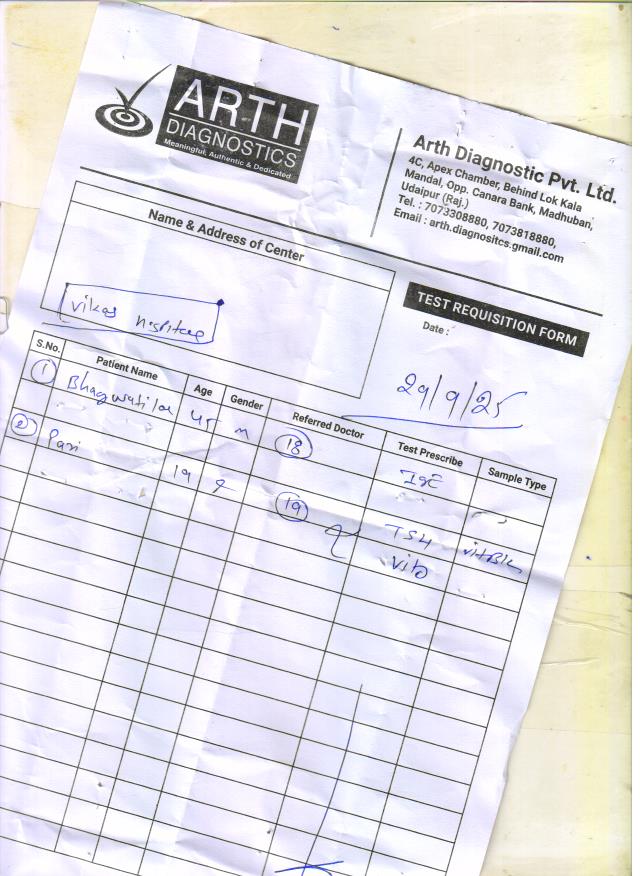 ARTH
DIAGNOSTICS
Meaningful, Authentic & Dedicated
Arth Diagnostic Pvt. Ltd.
4C, Apex Chamber, Behind Lok Kala
Mandal, Opp. Canara Bank, Madhuban,
Udaipur (Raj.)
Tel. : 7073308880, 7073818880,
Email : arth.diagnositcs.gmail.com
Name & Address of Center
Vikas
TEST REQUISITION FORM
Date :
29/9/25
S.No. Patient Name Age Gender Referred Doctor Test Prescribe Sample Type
1 Bhagwatilal 45 m 18 IgE
2 Pari 19 19 TSH vitB12
vitD